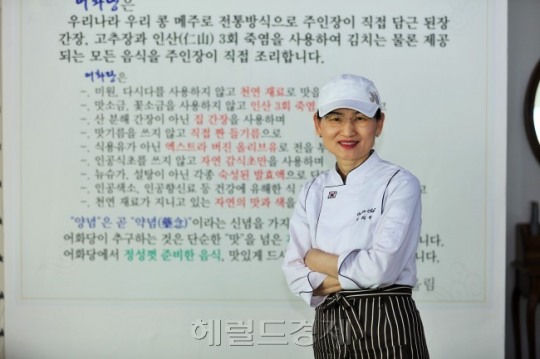 어화당은
우리나라 우리 콩 메주로 전통방식으로 주인장이 직접 담근 된장
간장, 고추장과 인산(仁山) 3회 죽염을 사용하여 김치는 물론 제공
되는 모든 음식을 주인장이 직접 조리합니다.
어화당은
-. 미원, 다시다를 사용하지 않고 천연 재료로 맛을
-. 맛소금, 꽃소금을 사용하지 않고 인산 3회 죽염
-. 산 분해 간장이 아닌 집 간장을 사용하며
-. 맛기름을 쓰지 않고 직접 짠 들기름으로
-. 식용유가 아닌 엑스트라 버진 올리브유로 전을 부
-. 인공식초를 쓰지 않고 자연 감식초만을 사용하며
-. 뉴슈가, 설탕이 아닌 각종 숙성된 발효액으로 단
-. 인공색소, 인공향신료 등 건강에 유해한 식
-. 천연 재료가 지니고 있는 자연의 맛과 색을
"양념"은 곧 "약념(藥念)"이라는 신념을 가지 니다.
어화당이 추구하는 것은 단순한 "맛"을 넘은 니다.
어화당에서 정성껏 준비한 음식, 맛있게 드시 다.
올림
헤럴드경제